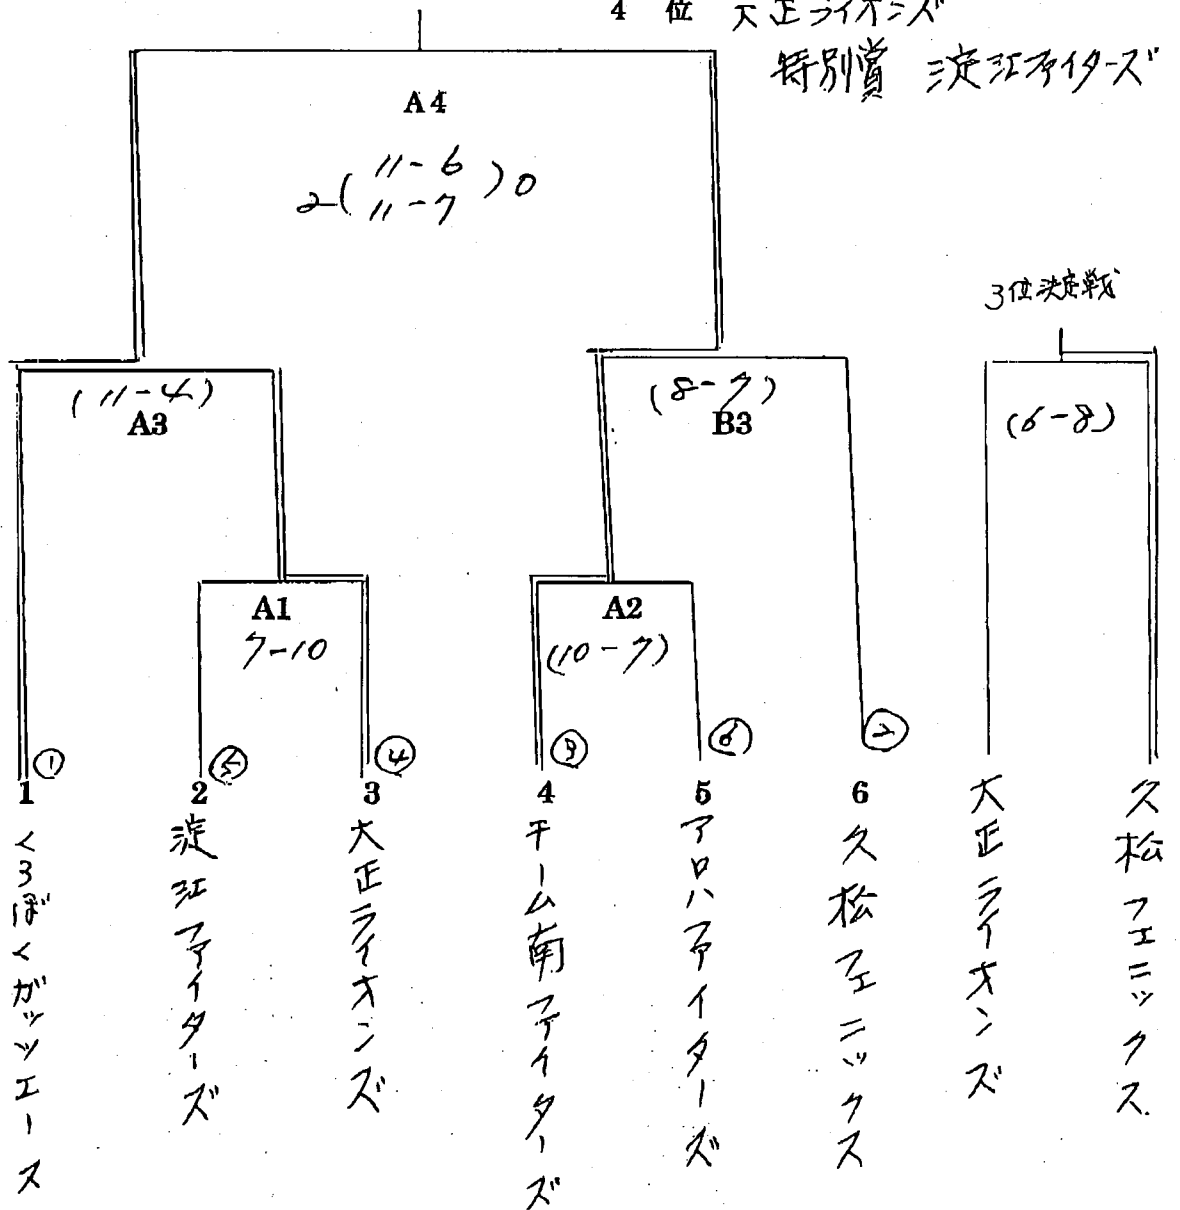 4 位 大正ライオンズ
特別賞 淀江ファイターズ
A4
2(11-6
11-7)0
3位決定戦
(11-4)
A3
(8-7)
B3
(6-8)
A1
7-10
A2
(10-7)
①
⑤
④
⑥
1
2
3
4
5
6
くろぼくガッツエース
淀江ファイターズ
大正ライオンズ
チーム南ファイターズ
アロハファイターズ
久松フェニックス
大正ライオンズ
久松フェニックス